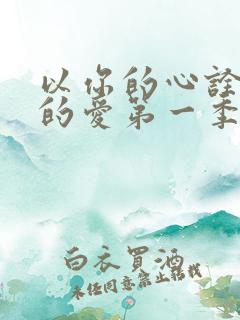 以你的心诠
的爱第一季
白衣买酒
未经同意禁止转载